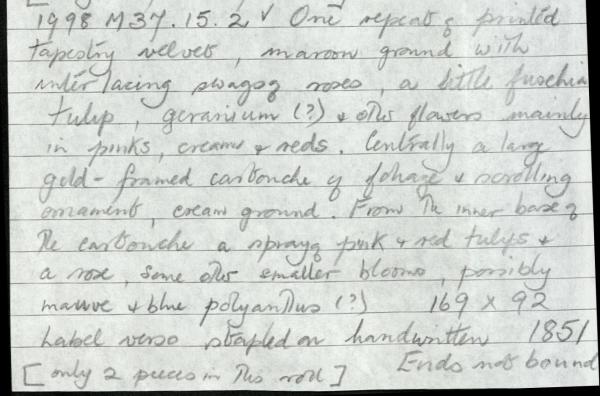 1998 M37.15.2 ✓ One repeat of printed
tapestry velvet, maroon ground with
interlacing swags of roses, a little fuschia
tulip, geranium (?) & other flowers mainly
in pinks, creams & reds. Centrally a large
gold-framed cartouche of foliage & scrolling
ornament, cream ground. From the inner base of
the cartouche a spray of pink & red tulips &
a rose, some other smaller blooms, possibly
mauve & blue polyanthus (?) 169 x 92
Label verso stapled on handwritten 1851
Ends not bound
[only 2 pieces in this roll]